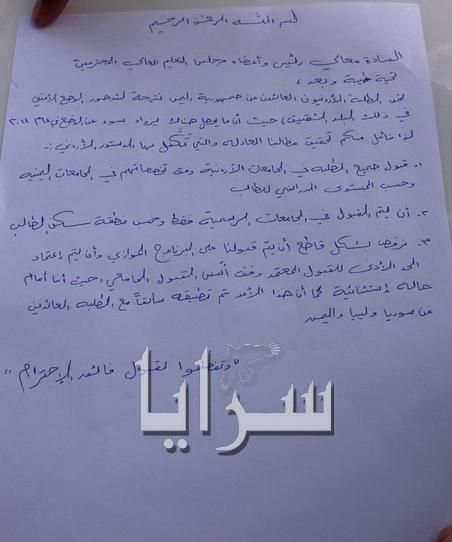 بسم الله الرحمن الرحيم
السادة معالي رئيس وأعضاء مجلس التعليم العالي المحترمين
تحية طيبة وبعد ،
نحن الطلبة الأردنيون العائدون من جمهورية اليمن نتيجة لتدهور الوضع الأمني
في ذلك البلد الشقيق، حيث أن ما يحصل هناك يزداد سوء عن الوضع في عام ٢٠١١
لذا نأمل منكم تحقيق مطالبنا العادلة والتي تكفل بها الدستور الأردني :-
١- قبول جميع الطلبه في الجامعات الأردنية وفق تخصصاتهم في الجامعات اليمنيه
وحسب المستوى الدراسي للطالب
٢- أن يتم القبول في الجامعات الرسمية فقط وحسب منطقة سكن الطالب
٣- نرفض بشكل قاطع أن يتم قبولنا على البرنامج الموازي وأن يتم إعتماد
الحد الأدنى للقبول المعتمد وفق أسس القبول الجامعي، حيث أننا أمام
حاله إستثنائية كما أن هذا الأمر تم تطبيقه سابقاً مع الطلبه العائدين
من سوريا وليبيا واليمن
"وتفضلوا بقبول فائق الإحترام"
سرايا